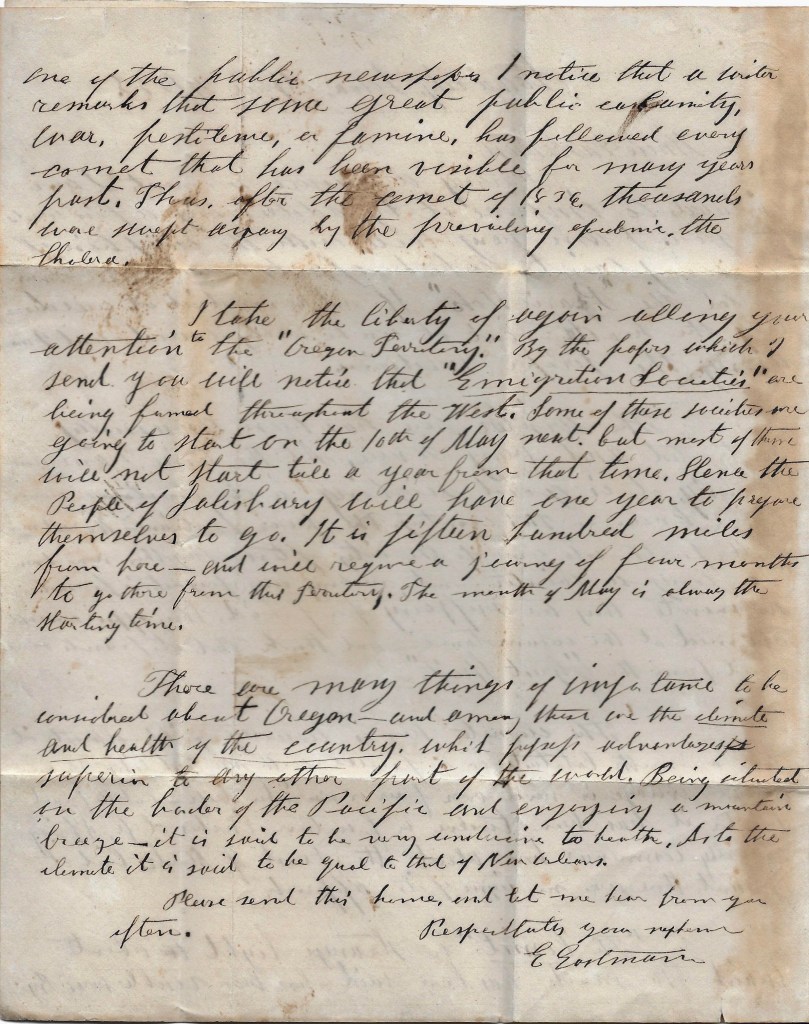 one of the public newspapers I notice that a writer
remarks that some great public calamity,
War, pestilence, or famine, has followed every
comet that has been visible for many years
past. Thus, after the comet of 1836, thousands
were swept away by the prevailing epidemic, the
Cholera.
I take the liberty of again calling your
attention to the "Oregon Territory". By the papers which I
send you will notice that "Emigration Societies" are
being formed throughout the West. Some of these societies are
going to start on the 10th of May next. but most of them
will not start till a year from that time. Hence the
People of Salisbury will have one year to prepare
themselves to go. It is fifteen hundred miles
from here — and will require a journey of four months
to go there from this Territory. The month of May is always the
starting time.
There are many things of importance to be
considered about Oregon — and among these are the climate
and health of the country. which possess advantages
superior to any other part of the world. Being situated
on the border of the Pacific and enjoying a mountain
breeze — it is said to be very conducive to health. As to the
climate it is said to be equal to that of New Orleans.
Please send this home, and let me hear from you
often. Respectfully your nephew
E Eastman